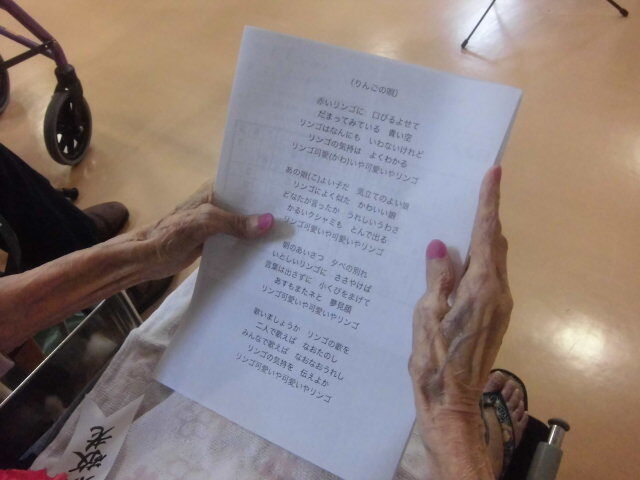 （りんごの唄）
赤いリンゴに　口びるよせて
だまってみている　青い空
リンゴはなんにも　いわないけれど
リンゴの気持は　よくわかる
リンゴ可愛(かわ)いや可愛いやリンゴ
あの娘(こ)よい子だ　気立てのよい娘
リンゴによく似た　かわいい娘
どなたが言ったか　うれしいうわさ
かるいクシャミも　とんで出る
リンゴ可愛いや可愛いやリンゴ
朝のあいさつ　夕べの別れ
いとしいリンゴに　ささやけば
言葉は出さずに　小くびをまげて
あすもまたネと　夢見顔
リンゴ可愛いや可愛いやリンゴ
歌いましょうか　リンゴの歌を
二人で歌えば　なおたのし
みんなで歌えば　なおなおうれし
リンゴの気持を　伝えよか
リンゴ可愛いや可愛いやリンゴ
敬老